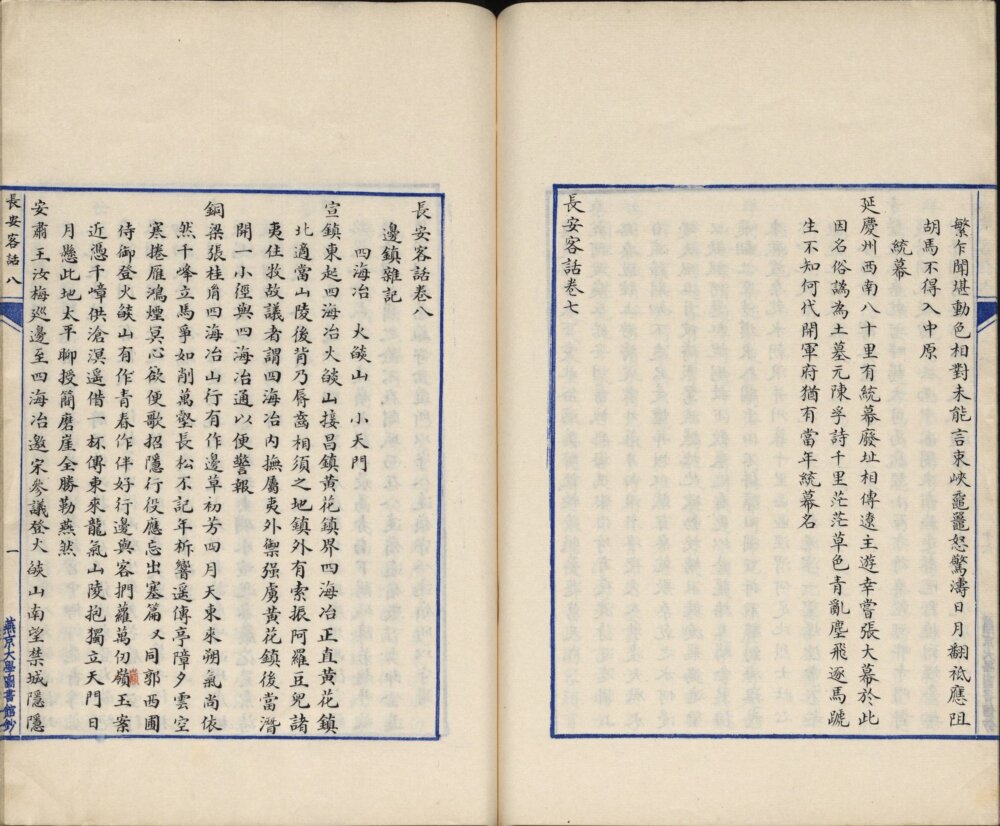 繁乍聞堪動色相對未能言束峽黿鼉怒驚濤日月翻祗應阻
胡馬不得入中原
統幕
延慶州西南八十里有統幕廢址相傳遼主遊幸嘗張大幕於此
因名俗譌為土墓元陳孚詩千里茫茫草色青亂塵飛逐馬蹏
生不知何代開軍府猶有當年統幕名
長安客話卷七
長安客話卷八
邊鎮雜記
四海冶 火燄山 小天門
宣鎮東起四海冶火燄山接昌鎮黃花鎮界四海冶正直黃花鎮
北適當山陵後背乃脣齒相須之地鎮外有索振阿羅豆兒諸
夷住牧故議者謂四海冶內撫屬夷外禦强虜黃花鎮後當潛
開一小徑與四海冶通以便警報
銅梁張桂胤四海冶山行有作邊草初芳四月天東來朔氣尚依
然千峰立馬爭如削萬壑長松不記年柝響遥傳亭障夕雲空
塞捲雁鴻煙冥心欲便歌招隱行役應忘出塞篇又同郭西圃
侍御登火燄山有作青春作伴好行邊與客捫蘿萬仞巔玉案
近憑千嶂供滄溟遥借一杯傳東來龍氣山陵抱獨立天門日
月懸此地太平聊授簡磨崖全勝勒燕然
安肅王汝梅巡邊至四海冶邀宋參議登火燄山南望禁城隱隱
長安客話 八
一
燕京大學圖書館鈔